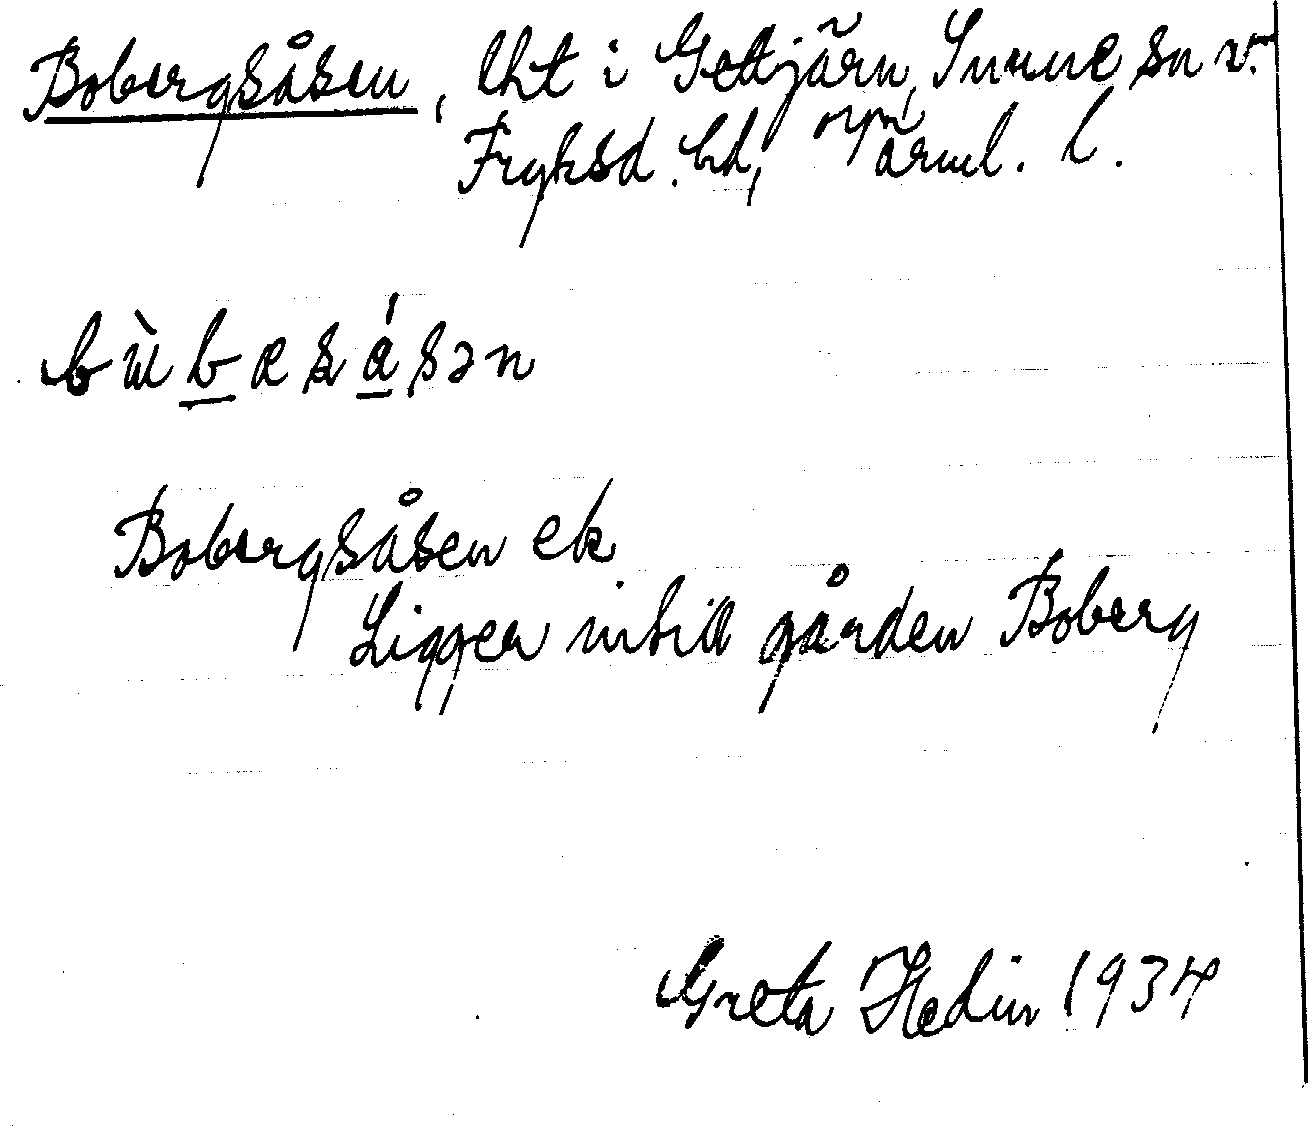 Bobergsåsen, lht i Gettjärn, Sunne sn v.
Fryksd. hd, Värml. l.
bùbæsásən
Bobergsåsen ek
Ligger intill gården Boberg
Greta Hedin 1934